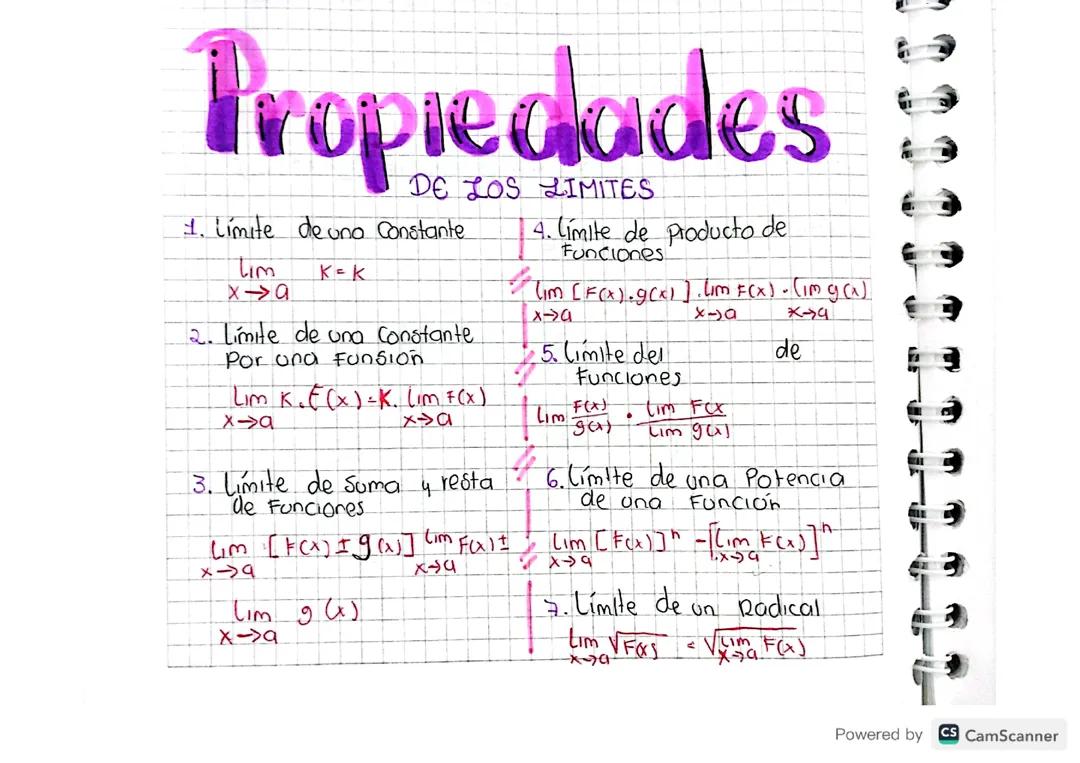 Propiedades
DE LOS LIMITES
1. Límite de una Constante
lim K = K
x→a
2. Límite de una Constante
Por una Funsión
Lim K.F(x)=K. lim F(x)
x→a x→a
3. Límite de Suma y resta
de Funciones
Lim [F(x) ± g(x)] lim F(x) ±
x→a x→a
Lim g(x)
x→a
4. Límite de Producto de
Funciones
Lim [F(x).g(x)].Lim F(x) . Lim g(x)
x→a x→a x→a
5. Límite del de
Funciones
Lim F(x)/g(x) . Lim F(x/Lim g(x)
6. Límite de una Potencia
de una Función
Lim [F(x)]ⁿ -[Lim F(x)]ⁿ
x→a x→a
7. Límite de un Radical
Lim √F(x) = √Lim F(x)
x→a x→a
Powered by CS CamScanner